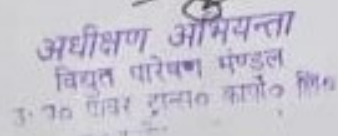 अधीक्षण अभियन्ता
विद्युत पारेषण मण्डल
उ० प्र० पावर ट्रान्स० कारपो० लि०